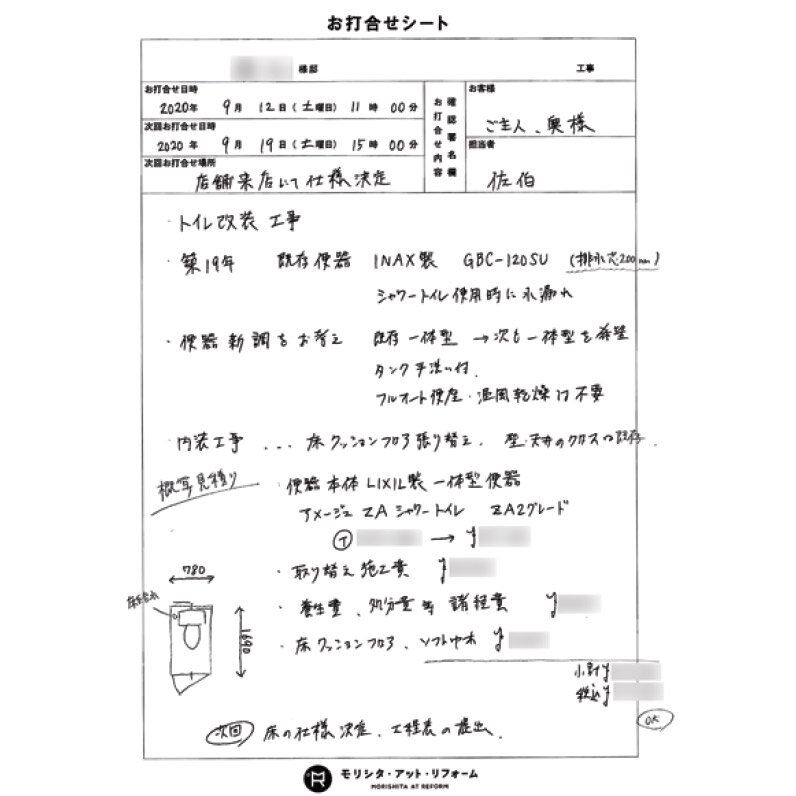 お打合せシート
様邸
工事
お打合せ日時
2020年 9月 12日(土曜日) 11時 00分
次回お打合せ日時
2020年 9月 19日(土曜日) 15時 00分
次回お打合せ場所
店舗来店にて仕様決定
お打合せ内容
確認署名欄
お客様
ご主人、奥様
担当者
佐伯
・トイレ改装工事
・築19年 既存便器 INAX製 GBC-120SU (排水芯200mm)
シャワートイレ使用時に水漏れ
・便器新調をお考え 既存一体型 →次も一体型を希望
タンク手洗い付.
フルオート便座・温風乾燥は不要
・内装工事 ... 床クッションフロア張り替え. 壁・天井のクロスは既存.
概算見積り
・便器本体 LIXIL製 一体型便器
アメージュ ZA シャワートイレ ZA2グレード
→ ¥
・取り替え施工費 ¥
・養生費、処分費等 諸経費 ¥
・床クッションフロア、ソフト巾木 ¥
780
1690
小計 ¥
税込 ¥
OK
次回 床の仕様決定、工程表の提出.
モリシタ・アット・リフォーム
MORISHITA AT REFORM